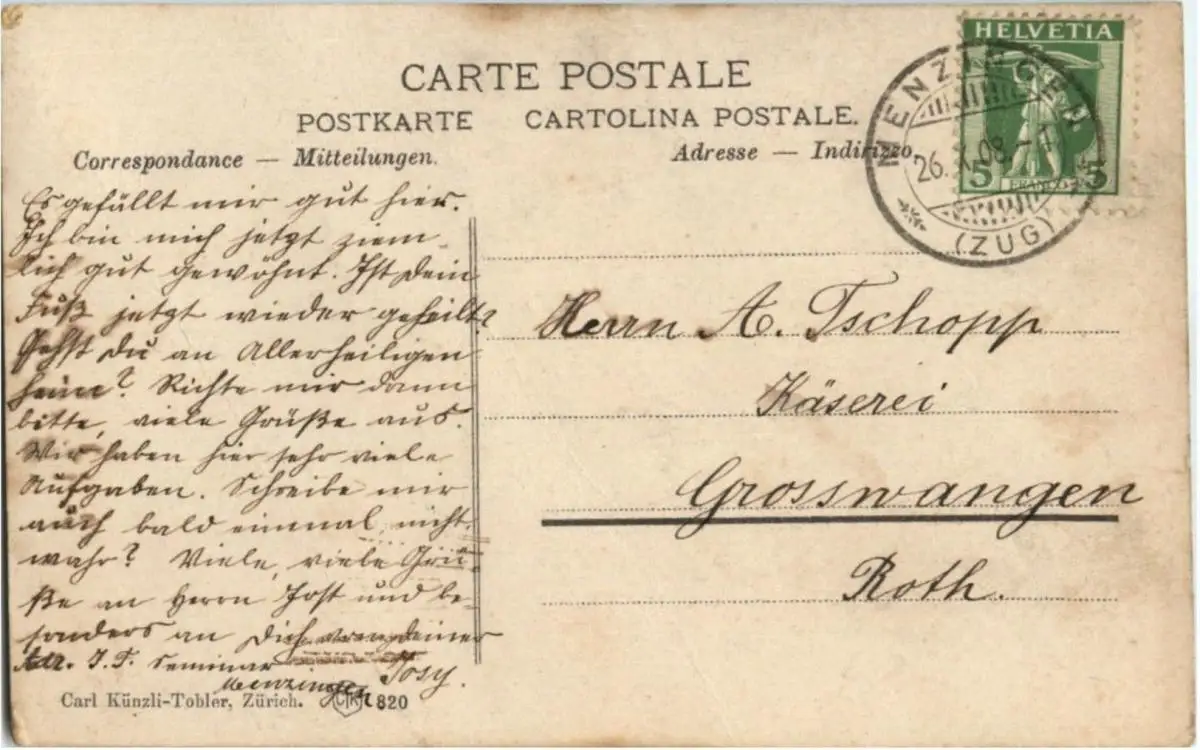 HELVETIA
CARTE POSTALE
POSTKARTE CARTOLINA POSTALE.
Correspondance — Mitteilungen.
Adresse — Indirizzo
MENZINGEN
26. X. 08.
(ZUG)
5 FRANCO 5
Es gefällt mir gut hier.
Ich bin mich jetzt ziem-
lich gut gewöhnt. Ist Dein
Fuß jetzt wieder geheilt?
Gehst Du an Allerheiligen
heim? Richte mir dann
bitte, viele Grüße aus.
Wir haben hier sehr viele
Aufgaben. Schreibe mir
auch bald einmal, nicht
wahr? Viele, viele Grü-
ße an Herrn Jost und be-
sonders an Dich von Deiner
Adr. J. T. Seminar Josy.
Menzingen
Herrn A. Tschopp
Käserei
Grosswangen
Roth.
Carl Künzli-Tobler, Zürich. CKT 820